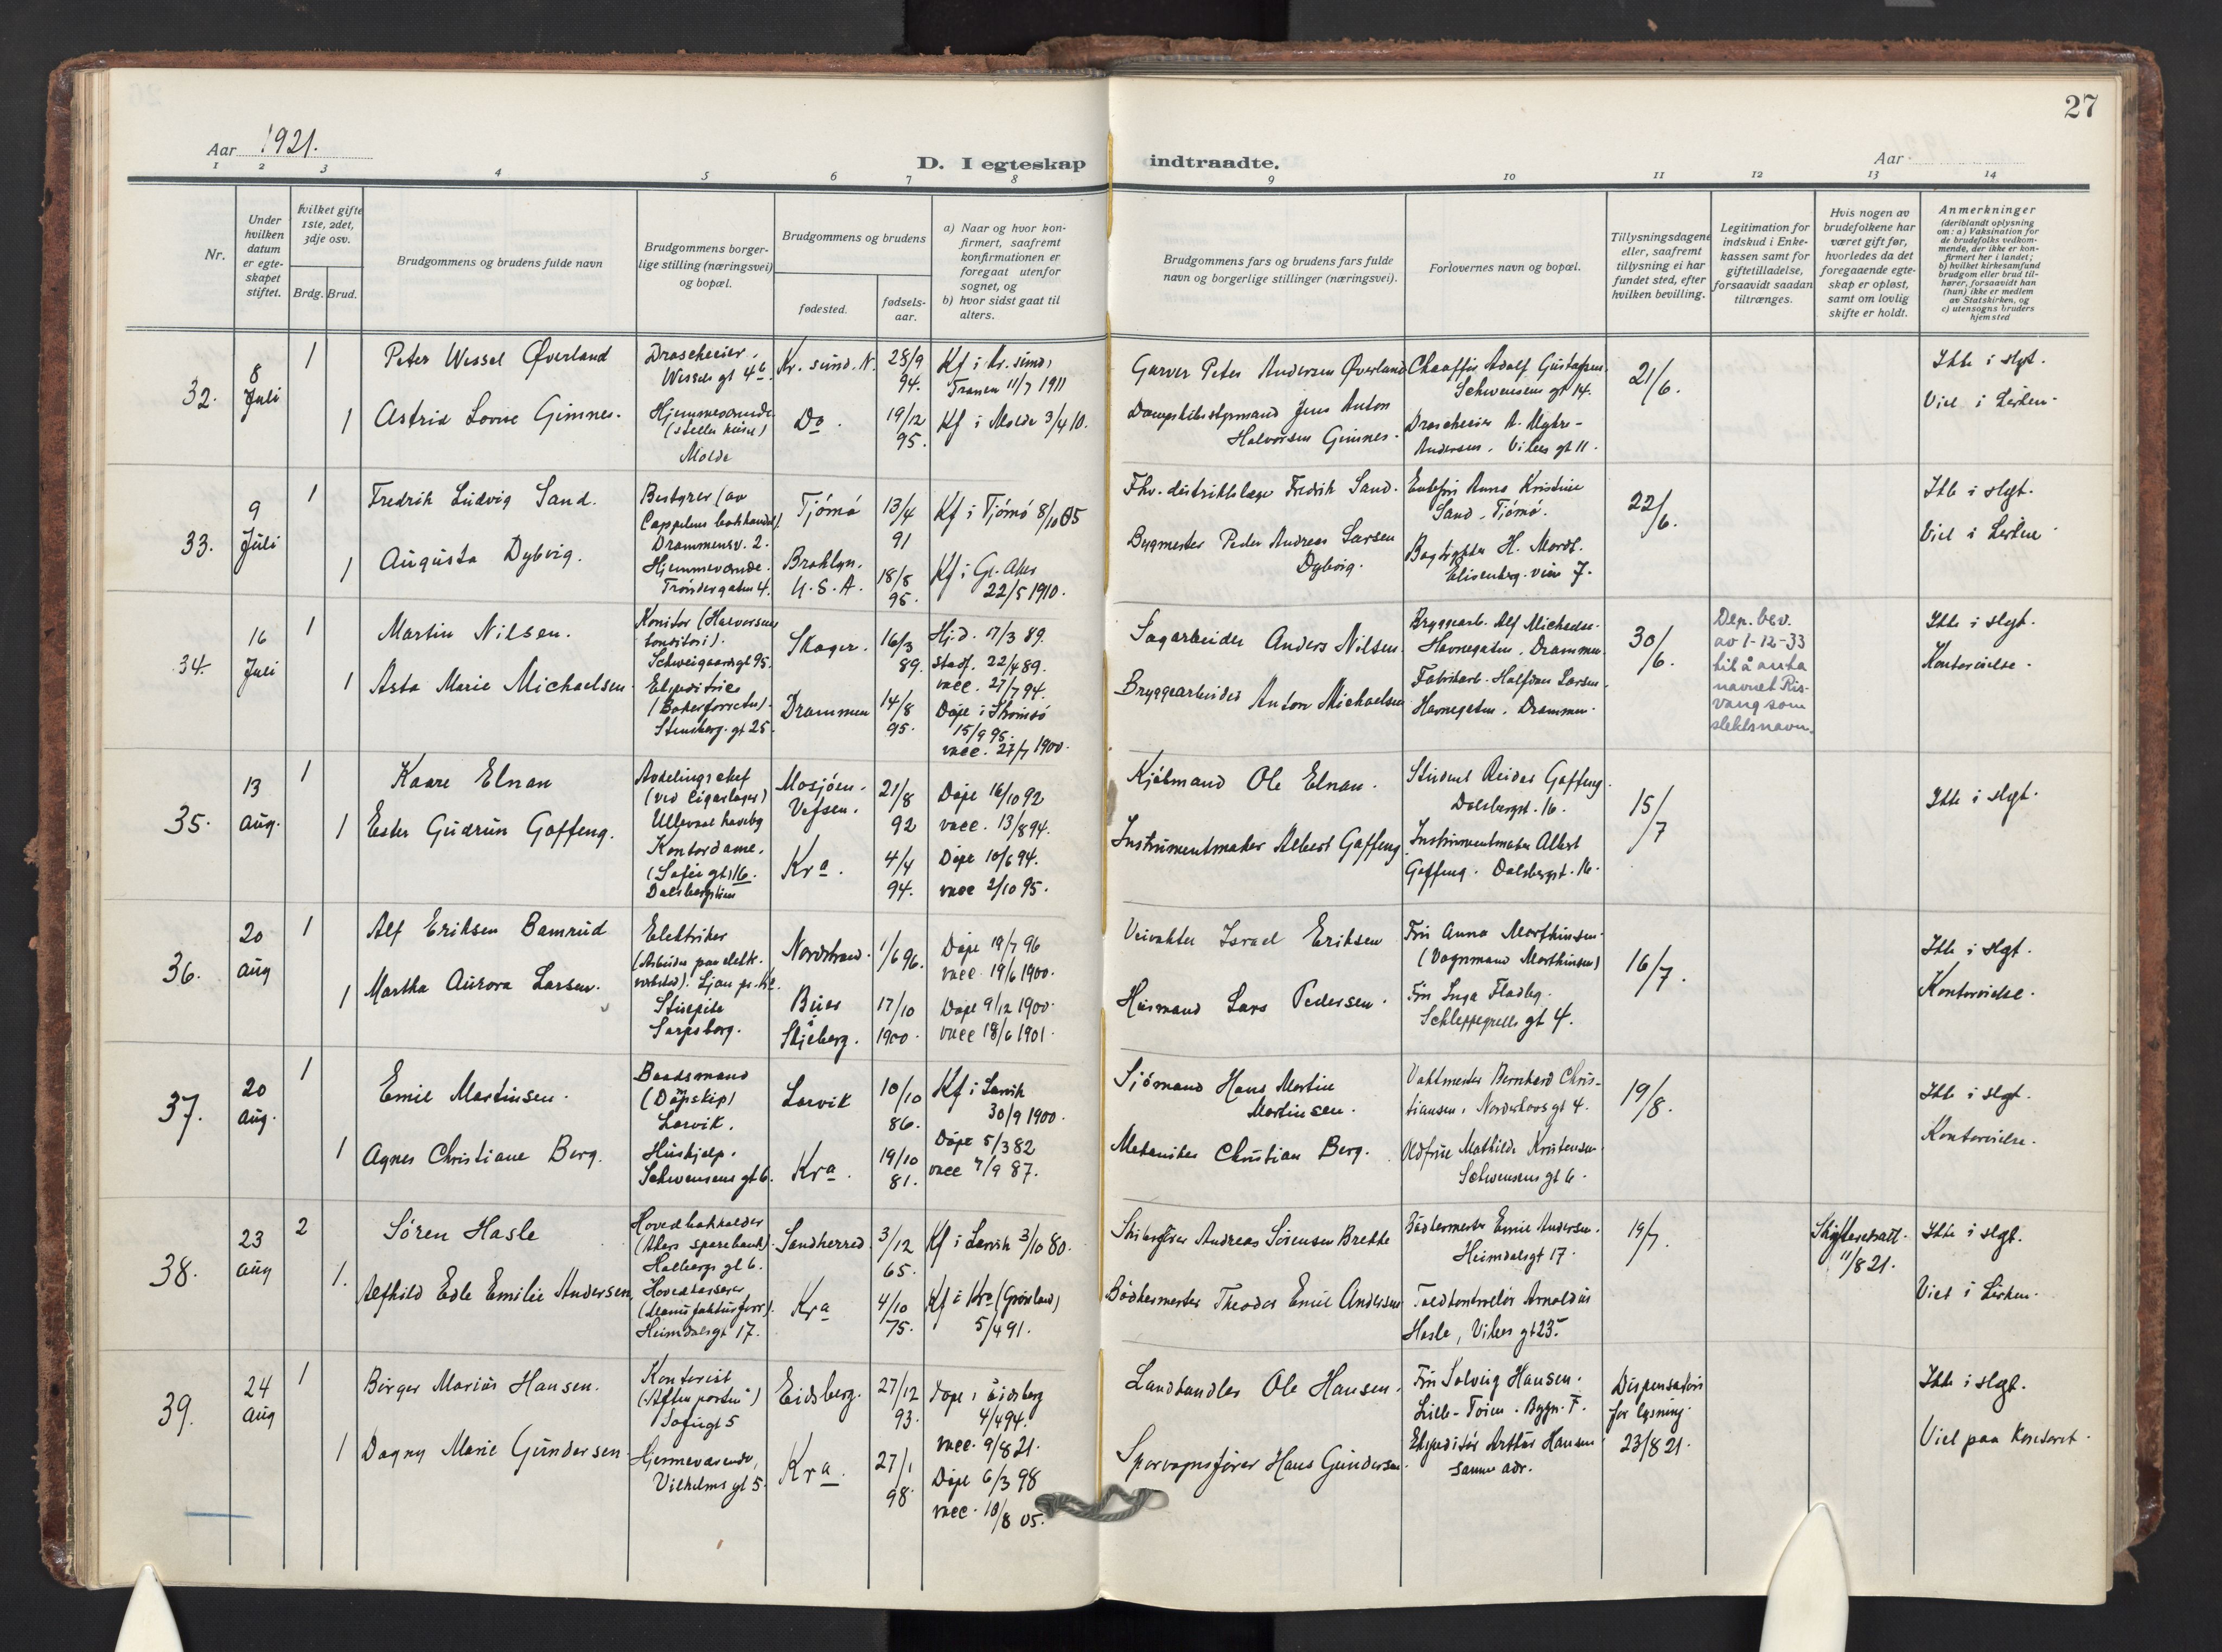 27
Aar 1921.
D. I egteskap indtraadte.
Aar
1 2 3 4 5 6 7 8 9 10 11 12 13 14
Nr.
Under hvilken datum er egteskapet stiftet.
hvilket gifte 1ste, 2det, 3dje osv.
Brdg. Brud.
Brudgommens og brudens fulde navn
Brudgommens borger-
lige stilling (næringsvei)
og bopæl.
Brudgommens og brudens
fødested.
fødsels-
aar.
a) Naar og hvor kon-
firmert, saafremt
konfirmationen er
foregaat utenfor
sognet, og
b) hvor sidst gaat til
alters.
Brudgommens fars og brudens fars fulde
navn og borgerlige stillinger (næringsvei).
Forlovernes navn og bopæl.
Tillysningsdagene
eller, saafremt
tillysning ei har
fundet sted, efter
hvilken bevilling.
Legitimation for
indskud i Enke-
kassen samt for
giftetilladelse,
forsaavidt saadan
tiltrænges.
Hvis nogen av
brudefolkene har
været gift før,
hvorledes da det
foregaaende egte-
skap er opløst,
samt om lovlig
skifte er holdt.
Anmerkninger
(deriblandt oplysning
om: a) Vaksination for
de brudefolks vedkom-
mende, der ikke er kon-
firmert her i landet;
b) hvilket kirkesamfund
brudgom eller brud til-
hører, forsaavidt han
(hun) ikke er medlem
av Statskirken, og
c) utensogns bruders
hjemsted
32.
8 Juli
1
Peter Wessel Øverland
Droscheeier.
Wessels gt 46.
Kr. sund. N.
28/9 94.
Kf i Kr. sund,
11/7 1911
Garver Peter Andersen Øverland
Chauffør Adolf Gustafsen
Schwensens gt 14.
21/6.
Ikke i slgt.
Viet i kirken.
1
Astrid Lovise Gimnes.
Hjemmeværende
(steller huset)
Molde
Do.
19/12 95.
Kf i Molde 3/4 10.
Dampskibsstyrmand Jens Anton
Halvorsen Gimnes.
Droscheeier A. Myhre-
Andersen. Vibes gt 11.
33.
9 Juli
1
Fredrik Ludvig Sand.
Bestyrer (av
Cappelens bokhandel)
Drammensv. 2.
Tjømø
13/4 91
Kf i Tjømø 8/10 05
Fhv. distriktslæge Fredrik Sand.
Enkefru Anna Kristine
Sand, Tjømø.
22/6.
Ikke i slgt.
Viet i kirken
1
Augusta Dybvig.
Hjemmeværende.
Trøndergaten 4.
Broklyn.
U.S.A.
18/8 95.
Kf i Gl. Aker
22/5 1910.
Bygmester Peder Andreas Larsen
Dybvig.
H. Mordt.
Elisenberg. veien 7.
34.
16 Juli
1
Martin Nilsen.
Konditor (Halvorsens
konditori).
Schweigaardsgt 95.
Skoger.
16/3 89.
Hj.d. 17/3 89.
stadf. 22/4 89.
vacc. 27/7 94.
Sagarbeider Anders Nilsen.
Bryggearb. Alf Michaelse.
Havnegaten. Drammen
30/6.
Dep. bev.
av 1-12-33
til å anta
navnet Ris-
vang som
slektsnavn.
Ikke i slgt.
Kontorvielse.
1
Asta Marie Michaelsen
Ekspeditrice
(Bakerforretn).
Stensberg. gt 25.
Drammen
14/8 95.
Døpt i Strømsø
15/9 95.
vacc. 27/7 1900.
Bryggearbeider Anton Michaelsen
Fabrikarb. Halfdan Larsen.
Havnegaten. Drammen.
35.
13 aug.
1
Kaare Elnan
Avdelingschef
(ved cigarlager)
Ullevaal haveby
Mosjøen.
Vefsen.
21/8 92
Døpt 16/10 92
vacc. 13/8 94.
Kjølmand Ole Elnan.
Student Reidar Gaffeng.
Dalsbergst. 16.
15/7
Ikke i slgt.
1
Ester Gudrun Gaffeng.
Kontordame.
Dalsbergstien 16.
Kra.
4/4 94.
Døpt 10/6 94.
vacc 2/10 95.
Instrumentmaker Albert Gaffeng
Instrumentmaker Albert
Gaffeng. Dalsbergst. 16.
36.
20 aug
1
Alf Eriksen Bamrud
Elektriker
(Arbeider paa elektr.
verksted). Ljan pr. Kr.
Nordstrand.
1/6 96.
Døpt 19/7 96
vacc. 19/6 1900.
Veivokter Israel Eriksen
Fru Anna Marthinsen.
(Vognmand Marthinsen)
16/7.
Ikke i slgt.
Kontorvielse.
1
Martha Aurora Larsen.
Stuepike
Sarpsborg.
Buer
Skjeberg.
17/10 1900.
Døpt 9/12 1900.
vacc 18/6 1901.
Husmand Lars Pedersen.
Fru Inga Fladby.
Schleppegrells gt 4.
37.
20 aug.
1
Emil Martinsen.
Baadsmand
Larvik.
Larvik
10/10 86.
Kf i Larvik
30/9 1900.
Sjömand Hans Martin
Martinsen.
Vaktmester Bernhard Chris-
tiansen, Norderhovsgt 4.
19/8.
Ikke i slgt.
Kontorvielse.
1
Agnes Christiane Berg.
Hushjelp.
Schwensens gt 6.
Kra.
19/10 81.
Døpt 5/3 82
vacc 7/9 87.
Mekaniker Christian Berg.
Oldfrue Mathilde Kristensen.
Schwensens gt 6.
38.
23 aug
2
Sören Hasle
Hovedbokholder
(Akers sparebank).
Holbergs gt 6.
Sandherred.
3/12 65.
Kf i Larvik 3/10 80.
Skibsfører Andreas Sörensen Brekke
Bødkermester Emil Andersen.
Heimdalsgt 17.
19/7.
Skifteretsatt.
11/8 21.
Ikke i slgt.
Viet i kirken.
1.
Alfhild Edle Emilie Andersen.
Hovedkasserer
(Manufakturforr).
Heimdalsgt 17.
Kra
4/10 75.
Kf i Kra (Grønland)
5/4 91.
Bödkermester Theodor Emil Andersen
Toldkontrollør Arnoldus
Hasle, Vibes gt 23.
39.
24 aug
1
Birger Marius Hansen.
Kontorist
("Aftenposten")
Sofiegt 5
Eidsberg.
27/12 93.
Døpt i Eidsberg
4/4 94.
vacc. 9/8 21.
Landhandler Ole Hansen.
Frk Solveig Hansen.
Lille-Tøien. Bygn. F.
Dispensation
for lysning.
23/8 21.
Ikke i slgt.
Viet paa kontoret.
1
Dagny Marie Gundersen.
Hjemmeværende,
Vilhelms gt 5.
Kra.
27/1 98.
Døpt 6/3 98
vacc. 10/8 05.
Sporvognsfører Hans Gundersen.
Ekspeditør Arthur Hansen
samme adr.